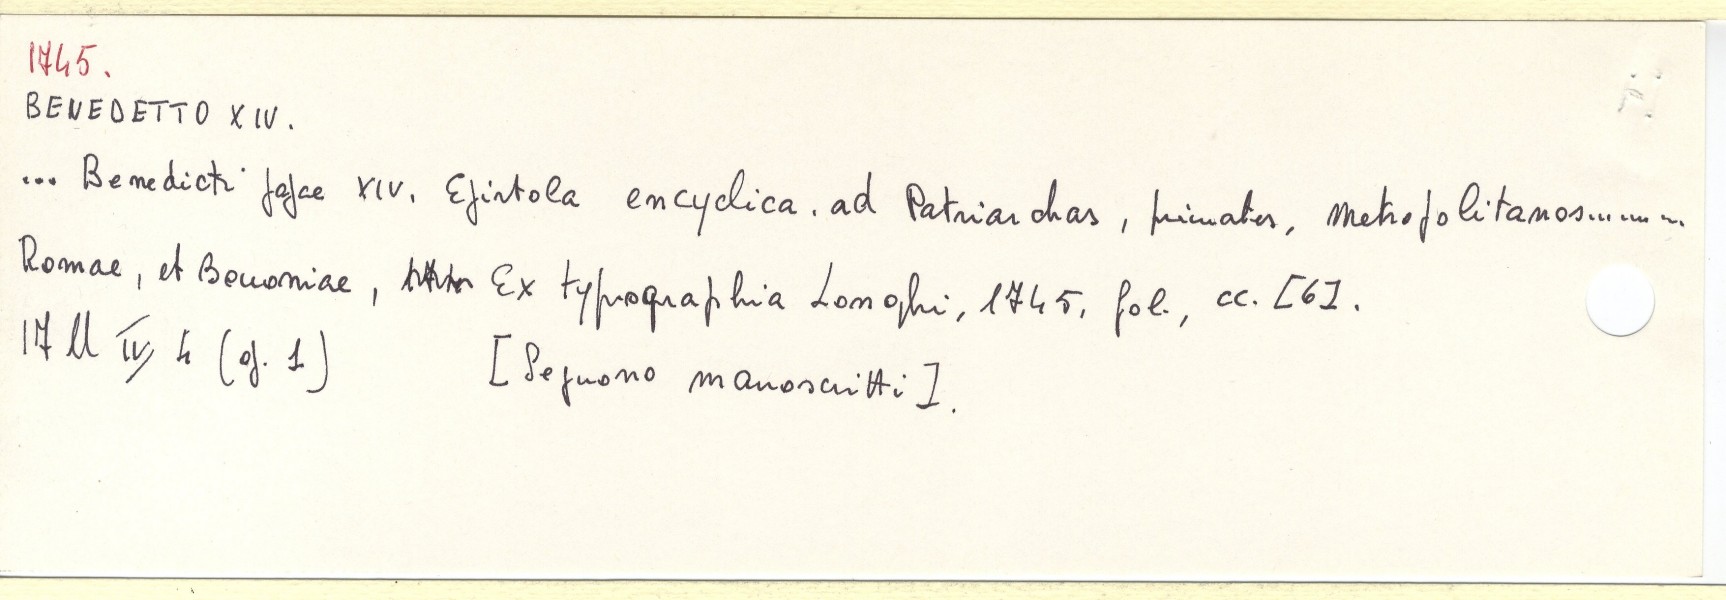 1745.
BENEDETTO XIV.
... Benedicti papae XIV. Epistola encyclica. ad Patriarchas, primates, metropolitanos.........
Romae, et Bononiae, Ex typographia Longhi, 1745, fol., cc. [6].
17 M IV, 4 (op. 1) [Seguono manoscritti].